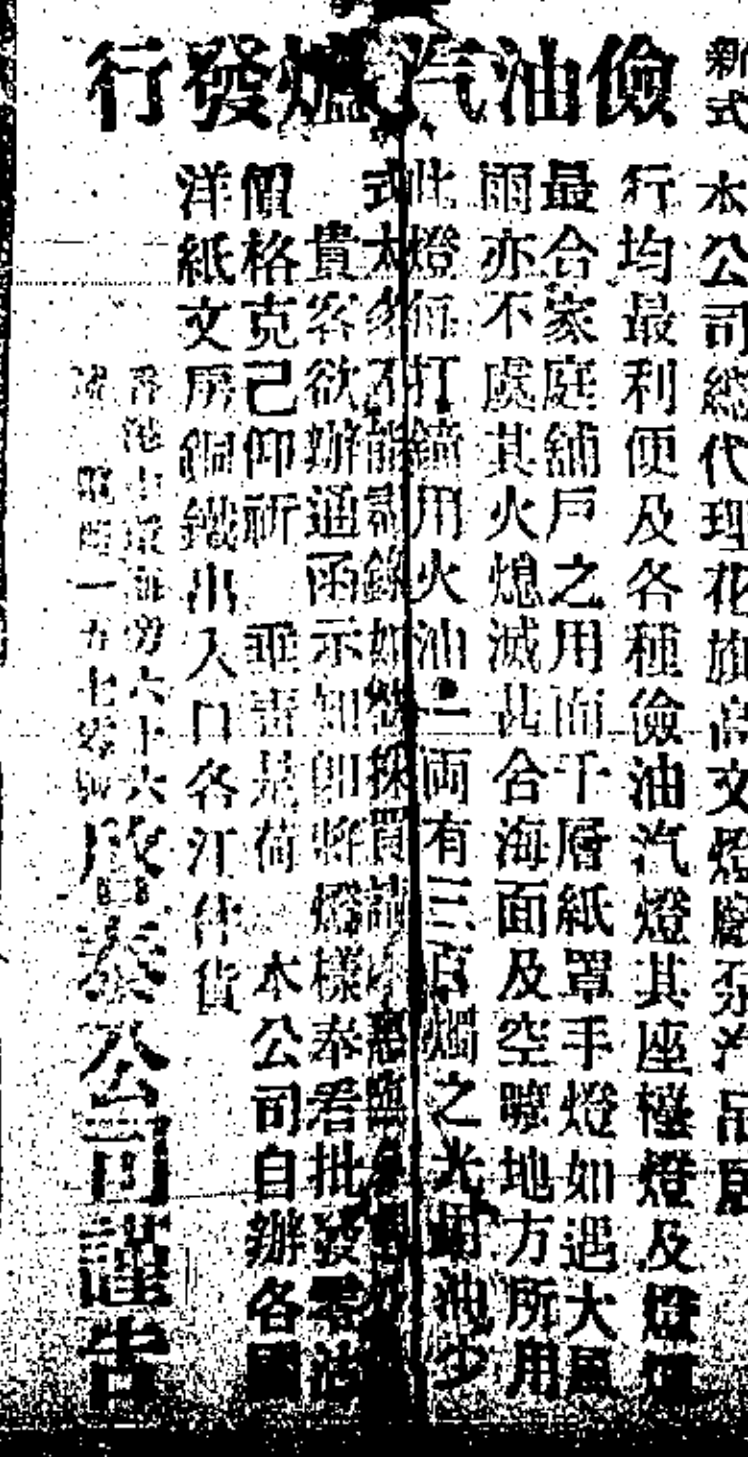 新式
儉油汽爐發行
本公司總代理花旗高文燈廠汽吊
行均最利便及各種儉油汽燈其座檯燈及燈
最合家庭舖戶之用而千層紙罩手燈如遇大風
雨亦不虞其火熄滅甚合海面及空曠地方所用
此燈每打鏑用火油二両有三百燭之光用油少
式太多不能錄如採買請
貴客欲辦通函示知即將燈樣奉看批發零沽
價格克己仰祈 垂青是荷 本公司自辦各國
洋紙文房銅鐵出入口各江什貨
香港海旁六十六
一五七
泰公司謹告